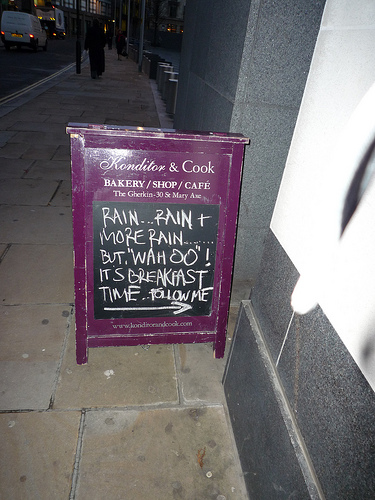 Konditor & Cook
BAKERY / SHOP / CAFÉ
The Gherkin-30 St Mary Axe
RAIN... RAIN +
MORE RAIN.......
BUT, "WAHOO"!
ITS BREAKFAST
TIME.. FOLLOW ME
www.konditorandcook.com